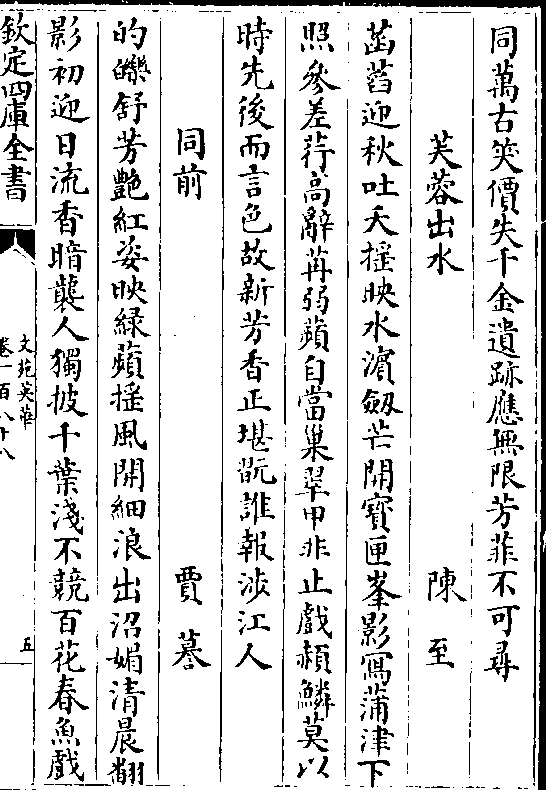 同萬古笑價失千金遺跡應無限芳菲不可尋
芙蓉出水　陳至
菡萏迎秋吐夭揺映水濵劔芒開寳匣峯影寫蒲津下
照參差荇高辭苒弱蘋自當巢翠甲非止戲頳鱗莫以
時先後而言色故新芳香正堪翫誰報涉江人
同前　賈謩
的皪舒芳艷紅姿映緑蘋揺風開細浪出沼媚清晨翻
影初迎日流香暗襲人獨披千葉淺不競百花春魚戲
欽定四庫全書
文苑英華
卷一百八十八
五